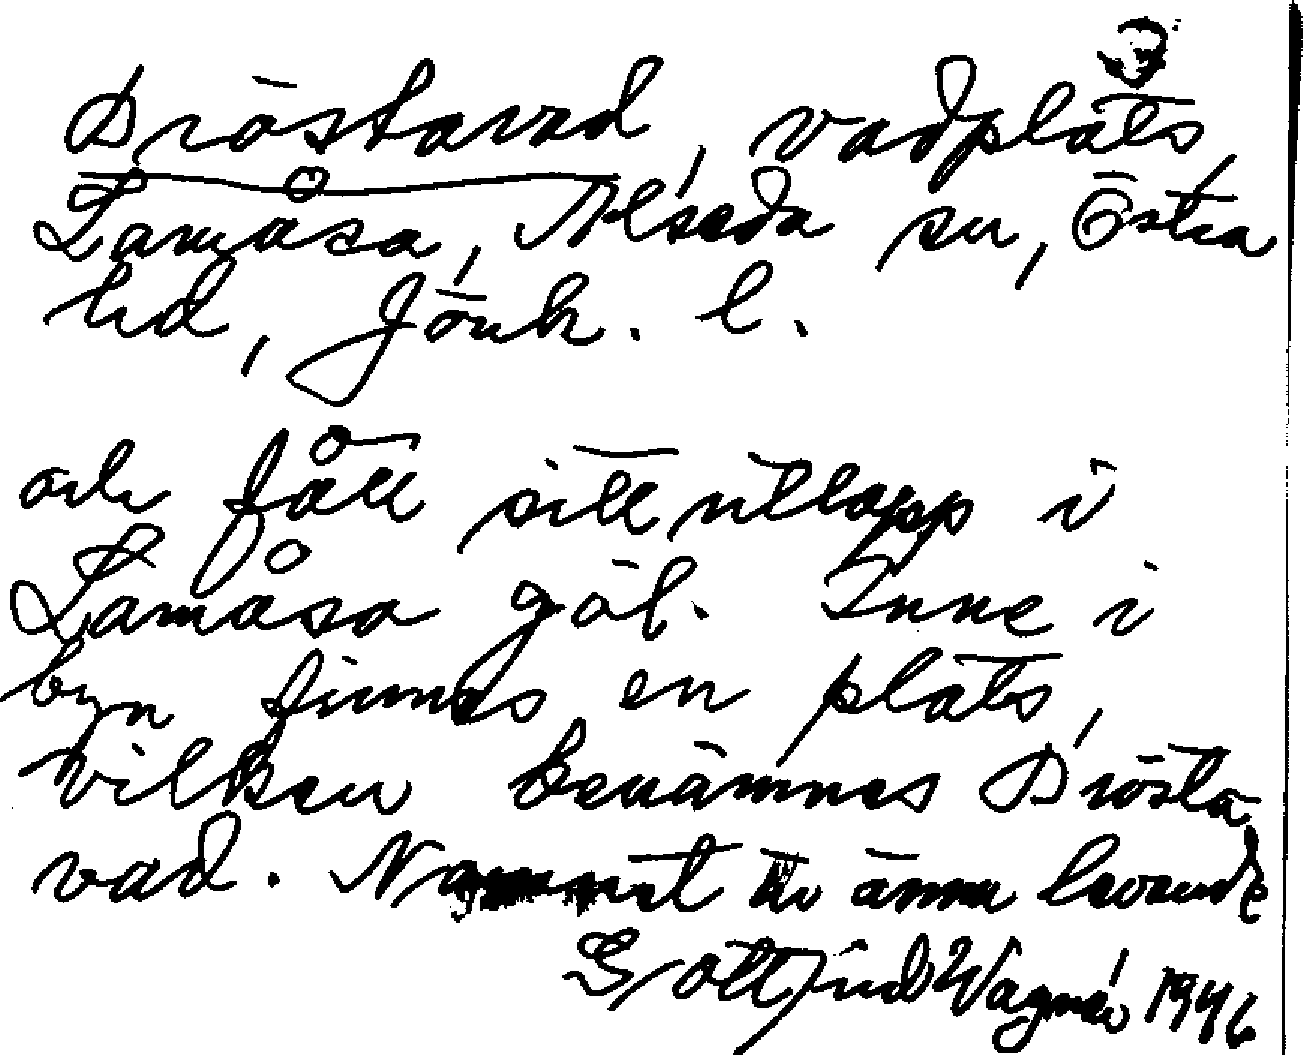 3
Dröstavad, vadplats,
Lamåsa, Alseda sn, Östra
hd, Jönk. l.
och fått sitt utlopp i
Lamåsa göl. Inne i
byn finnes en plats,
vilken benämnes Drösta
vad. Namnet är ännu levande
Gottfrid Wagnér 1946